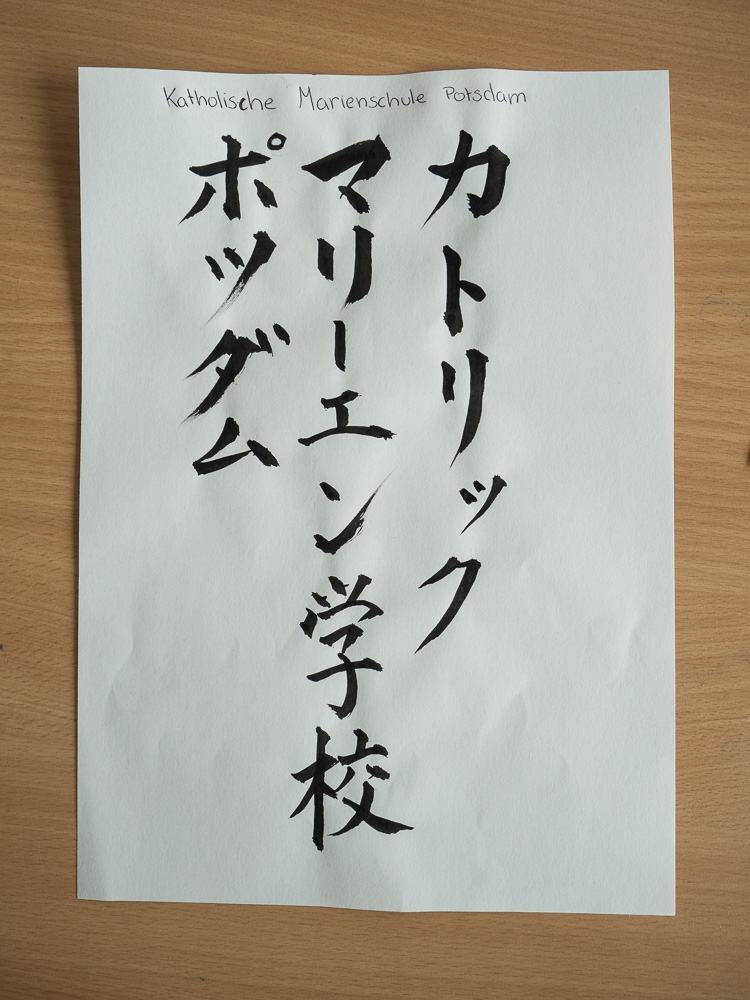 Katholische Marienschule Potsdam
カトリック
マリーエン学校
ポツダム